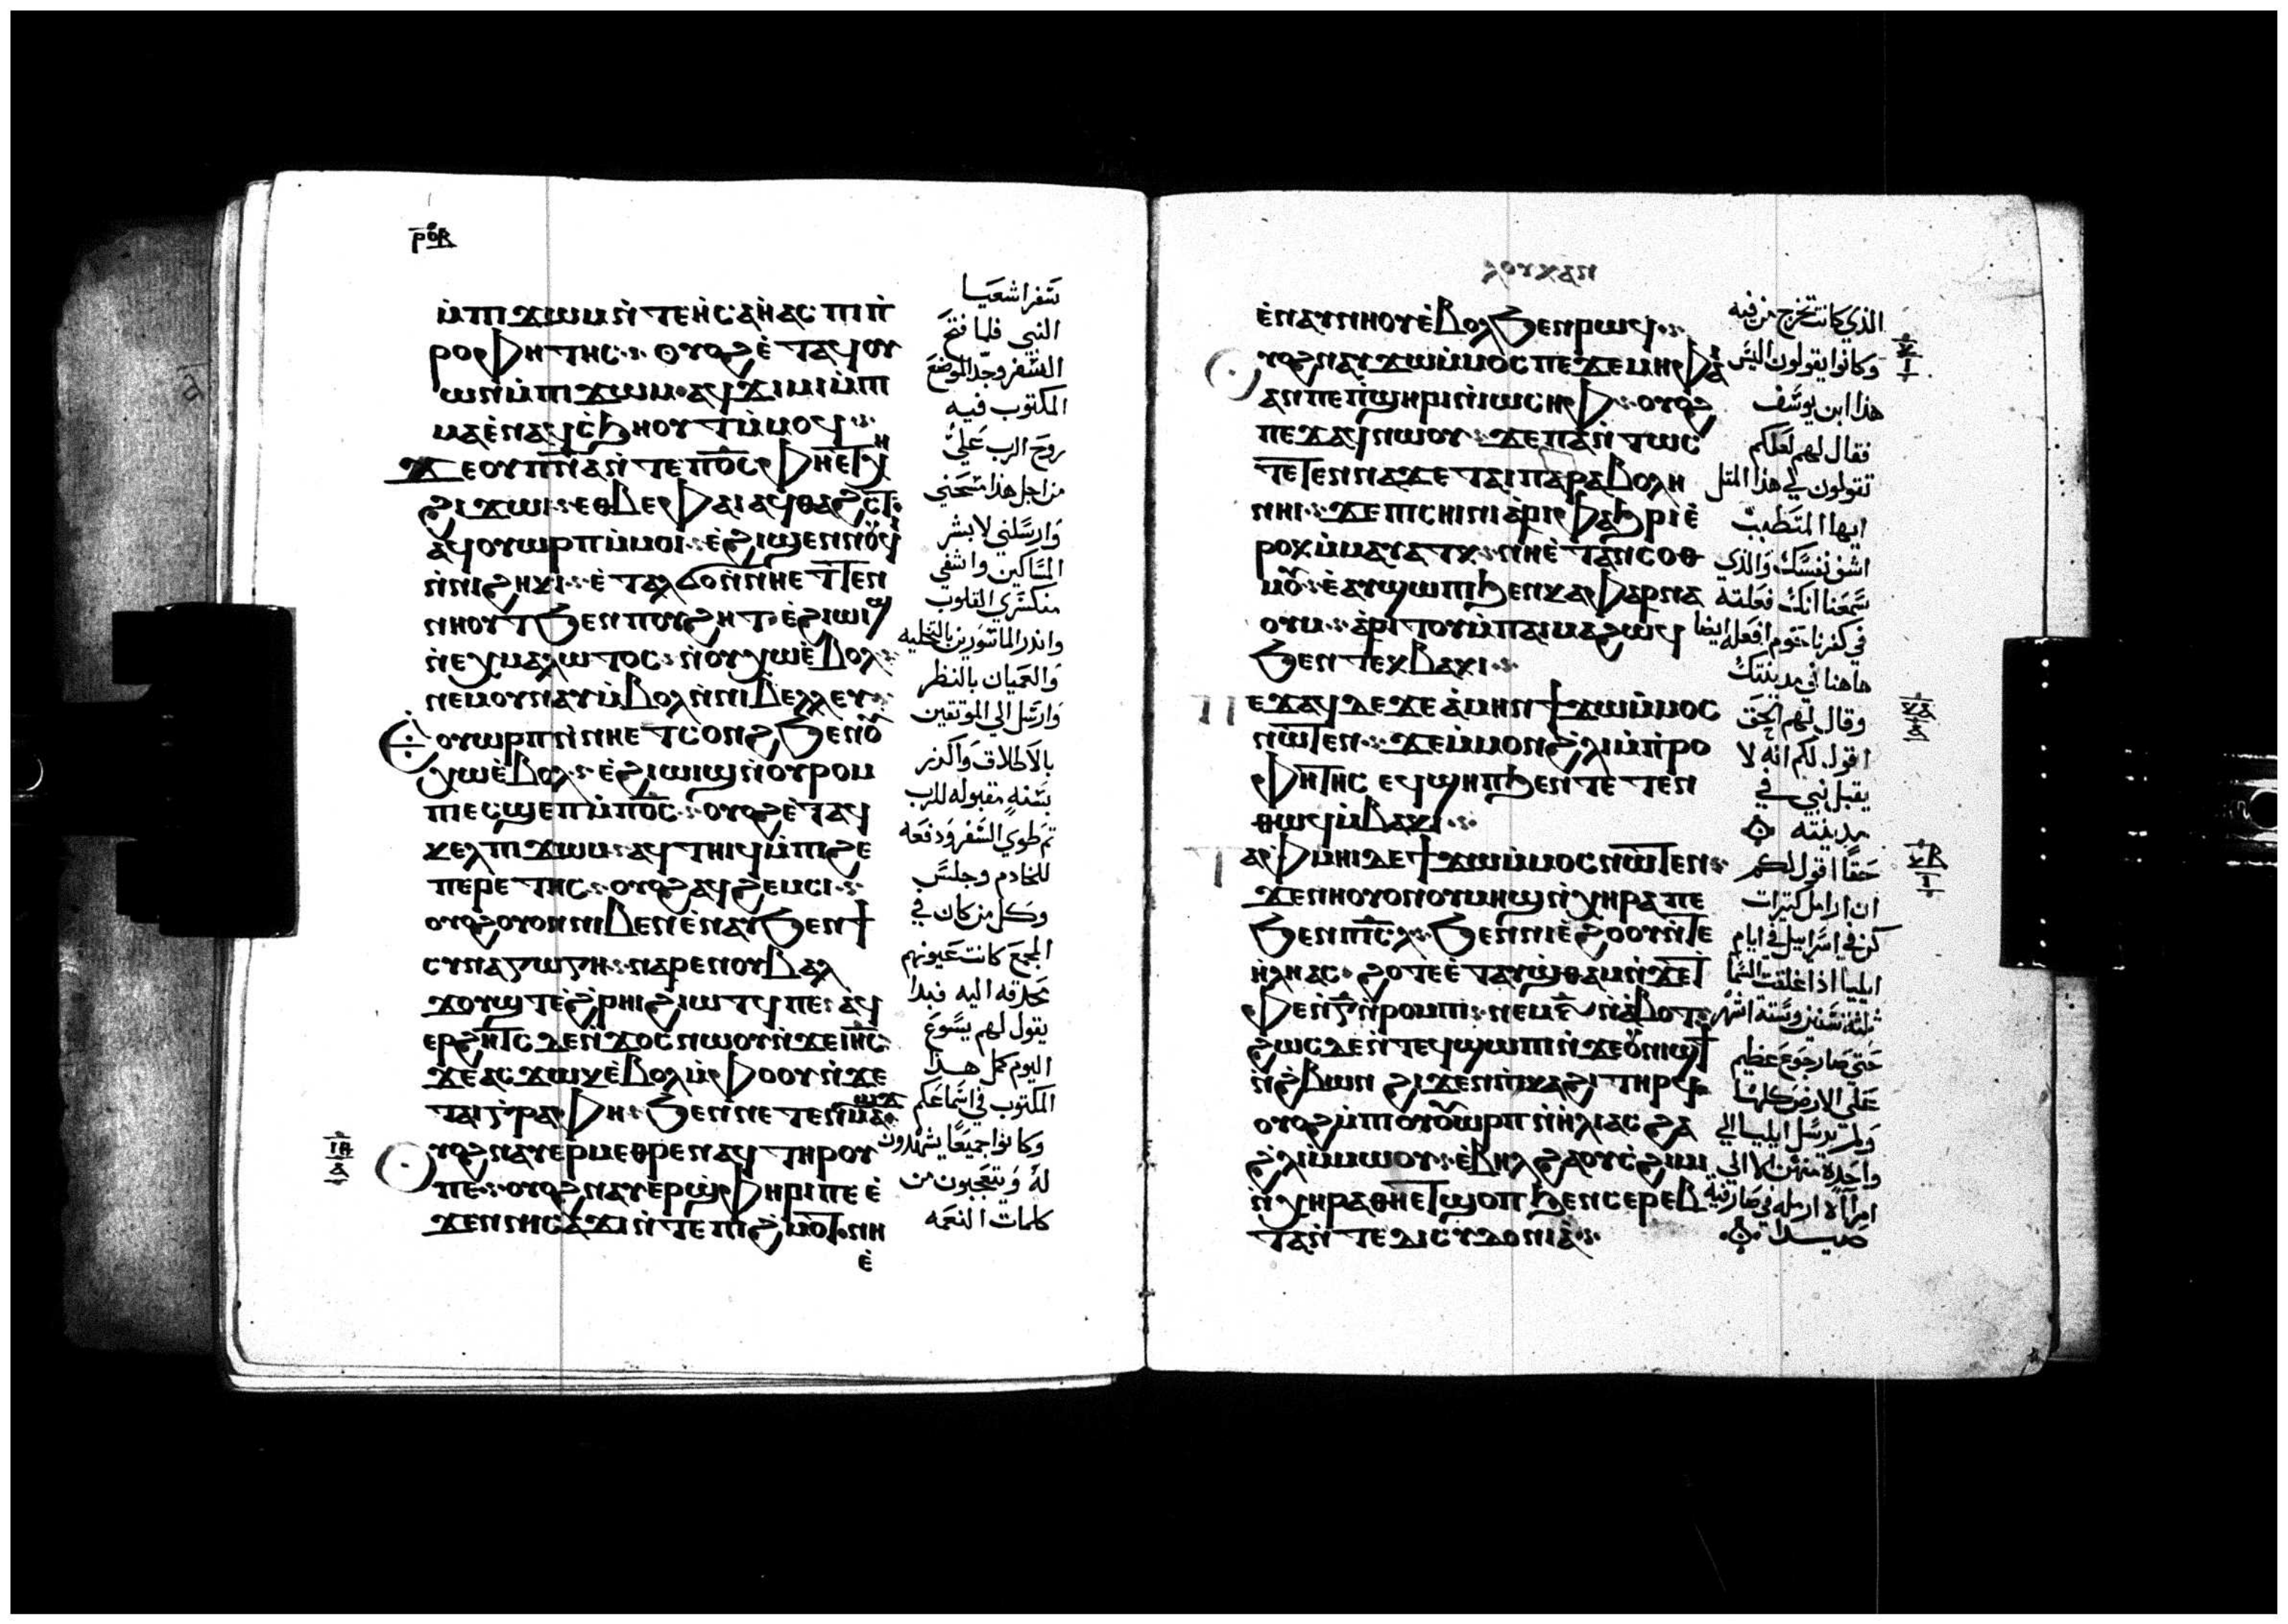 ⲣⲟⲃ
ⲙ̀ⲡⲓϫⲱⲙ ⲛ̀ⲧⲉ ⲏ̀ⲥⲁⲏ̀ⲁⲥ ⲡⲓⲡ̀
ⲣⲟⲫⲏⲧⲏⲥ ⲟⲩⲟϩ ⲉ̀ⲧⲁϥⲟⲩ
ⲱⲛ ⲙ̀ⲡⲓϫⲱⲙ ⲁϥϫⲓⲙⲓ ⲙ̀ⲡⲓ
ⲙⲁ ⲉ̀ⲛⲁϥⲥ̀ϧⲏⲟⲩⲧ ⲙ̀ⲙⲟϥ
ϫⲉ ⲟⲩⲡ̅ⲛ̅ⲁ̅ ⲛ̀ⲧⲉ ⲡ⳪ ⲫⲏⲉⲧⲭⲏ
ϩⲓϫⲱⲓ ⲉⲑⲃⲉⲫⲁⲓ ⲁϥⲑⲁϩⲥⲧ
ⲁϥⲟⲩⲱⲣⲡ ⲙ̀ⲙⲟⲓ ⲉ̀ϩⲓϣⲉⲛⲛⲟⲩϥⲓ
ⲛ̀ⲛⲓϩⲏⲕⲓ ⲉ̀ⲧⲁⲗϭⲟ ⲛ̀ⲛⲏⲉⲧⲧⲉⲛ
ⲛⲏⲟⲩⲧ ϧⲉⲛ ⲡⲟⲩϩⲏⲧ ⲉ̀ϩⲓⲱⲓϣ
ⲛ̀ⲉⲭⲙⲁⲗⲱⲧⲟⲥ ⲛ̀ⲟⲩⲭⲱ ⲉ̀ⲃⲟⲗ
ⲛⲉⲙ ⲟⲩⲛⲁⲩ ⲙ̀ⲃⲟⲗ ⲛ̀ⲛⲓⲃⲉⲗⲗⲉⲩ
ⲉ̀ⲟⲩⲱⲣⲡ ⲛ̀ⲛⲏⲉⲧⲥⲟⲛϩ ϧⲉⲛ ⲟⲩ
ⲭⲱ ⲉ̀ⲃⲟⲗ ⲉ̀ϩⲓⲱⲓϣ ⲛ̀ⲟⲩⲣⲟⲙ
ⲡⲓ ⲉⲥϣⲉⲡ ⲙ̀ⲡ⳪ ⲟⲩⲟϩ ⲉ̀ⲧⲁϥ
ⲕⲉⲗ ⲡⲓϫⲱⲙ ⲁϥⲧⲏⲓϥ ⲙ̀ⲡⲓϩⲉ
ⲡⲉⲣⲉⲧⲏⲥ ⲟⲩⲟϩ ⲁϥϩⲉⲙⲥⲓ
ⲟⲩⲟϩ ⲟⲩⲟⲛ ⲛⲓⲃⲉⲛ ⲉ̀ⲛⲁⲩ ϧⲉⲛ ϯ
ⲥⲩⲛⲁⲅⲱⲅⲏ ⲛⲁⲣⲉ ⲛⲟⲩⲃⲁⲗ
ϫⲟⲩϣⲧ ⲉ̀ϩ̀ⲣⲏⲓ ϩⲓⲱⲧϥ ⲡⲉ ⲁϥ
ⲉⲣϩⲏⲧⲥ ⲇⲉ ⲛ̀ϫⲟⲥ ⲛⲱⲟⲩ ⲛ̀ϫⲉ ⲓⲏ̅ⲥ̅
ϫⲉ ⲁⲥϫⲱⲕ ⲉ̀ⲃⲟⲗ ⲙ̀ⲫⲟⲟⲩ ⲛ̀ϫⲉ
ⲧⲁⲓⲅ̀ⲣⲁⲫⲏ ϧⲉⲛ ⲛⲉⲧⲉⲛⲙⲁϣϫ
ⲟⲩⲟϩ ⲛⲁⲩⲉⲣⲙⲉⲑⲣⲉ ⲛⲁϥ ⲧⲏⲣⲟⲩ
ⲡⲉ ⲟⲩⲟϩ ⲛⲁⲩⲉⲣϣⲫⲏⲣⲓ ⲡⲉ ⲉ̀
ϫⲉⲛ ⲛⲓⲥⲁϫⲓ ⲛ̀ⲧⲉ ⲡⲓϩ̀ⲙⲟⲧ ⲛⲏ
ⲉ̀
سفر اشعيا
النبي فلما فتح
السفر وجد الموضع
المكتوب فيه
روح الرب علي
من اجل هذا مسحني
وارسلني لابشر
المساكين واشفي
منكسري القلوب
وانذر الماسورين بالتخليه
والعميان بالنظر
وارسل الي الموثقين
بالاطلاق واكرز
بسنه مقبوله للرب
ثم طوي السفر ودفعه
للخادم وجلس
وكل من كان في
المجمع كانت عيونهم
محدقه اليه فبدا
يقول لهم يسوع
اليوم كمل هذا
المكتوب في اسماعكم
وكانوا جميعا يشهدون
له ويتعجبون من
كلمات النعمه
ⲉ̀ⲛⲁⲩⲛⲏⲟⲩ ⲉ̀ⲃⲟⲗ ϧⲉⲛ ⲣⲱϥ
ⲟⲩⲟϩ ⲛⲁⲩϫⲱ ⲙ̀ⲙⲟⲥ ⲡⲉ ϫⲉ ⲙⲏ ⲫⲁⲓ
ⲁⲛ ⲡⲉ ⲡ̀ϣⲏⲣⲓ ⲛ̀ⲓⲱⲥⲏⲫ ⲟⲩⲟϩ
ⲡⲉϫⲁϥ ⲛⲱⲟⲩ ϫⲉ ⲡⲁⲛⲧⲱⲥ
ⲧⲉⲧⲉⲛⲛⲁϫⲉ ⲧⲁⲓⲡⲁⲣⲁⲃⲟⲗⲏ
ⲛⲏⲓ ϫⲉ ⲡⲓⲥⲏⲓⲛⲓ ⲁ̀ⲣⲓⲫⲁϧⲣⲓ ⲉ̀
ⲣⲟⲕ ⲙ̀ⲙⲁⲩⲁⲧⲕ ⲛⲏ ⲉ̀ⲧⲁⲛⲥⲟⲑ
ⲙⲟⲩ ⲉ̀ⲁⲩϣⲱⲡⲓ ϧⲉⲛ ⲕⲁⲫⲁⲣⲛⲁ
ⲟⲩⲙ ⲁ̀ⲣⲓⲧⲟⲩ ⲙ̀ⲡⲁⲓⲙⲁ ϩⲱϥ
ϧⲉⲛ ⲧⲉⲕⲃⲁⲕⲓ
ⲡⲉϫⲁϥ ⲇⲉ ϫⲉ ⲁ̀ⲙⲏⲛ ϯϫⲱ ⲙ̀ⲙⲟⲥ
ⲛⲱⲧⲉⲛ ϫⲉ ⲙ̀ⲙⲟⲛ ϩ̀ⲗⲓ ⲙ̀ⲡ̀ⲣⲟ
ⲫⲏⲧⲏⲥ ⲉϥϣⲏⲡ ϧⲉⲛ ⲧⲉⲧⲉⲛ
ⲑⲱϥ ⲙ̀ⲃⲁⲕⲓ
ⲧⲁⲫⲙⲏⲓ ⲇⲉ ϯϫⲱ ⲙ̀ⲙⲟⲥ ⲛⲱⲧⲉⲛ
ϫⲉ ⲛⲉ ⲟⲩⲟⲛ ⲟⲩⲙⲏϣ ⲛ̀ⲭⲏⲣⲁ ⲡⲉ
ϧⲉⲛ ⲡⲓⲥ̅ⲗ̅ ϧⲉⲛ ⲛⲓⲉ̀ϩⲟⲟⲩ ⲛ̀ⲧⲉ
ⲏ̀ⲗⲓⲁⲥ ϩⲟⲧⲉ ⲉ̀ⲧⲁⲩϣ̀ⲑⲁⲙ ⲛ̀ϫⲉ ⲧ
ⲫⲉ ⲛ̀ⲅ̅ ⲛ̀ⲣⲟⲙⲡⲓ ⲛⲉⲙ ⲋ̅ ⲛ̀ⲁ̀ⲃⲟⲧ
ϩⲱⲥ ⲇⲉ ⲛ̀ⲧⲉϥϣⲱⲡⲓ ⲛ̀ϫⲉ ⲟⲩⲛⲓϣϯ
ⲛ̀ϩ̀ⲃⲱⲛ ϩⲓϫⲉⲛ ⲡ̀ⲕⲁϩⲓ ⲧⲏⲣϥ
ⲟⲩⲟϩ ⲙ̀ⲡⲟⲩⲟⲩⲱⲣⲡ ⲛ̀ⲏ̀ⲗⲓⲁⲥ ϩⲁ
ϩ̀ⲗⲓ ⲙ̀ⲙⲱⲟⲩ ⲉ̀ⲃⲏⲗ ϩⲁ ⲟⲩⲥ̀ϩⲓⲙⲓ
ⲛ̀ⲭⲏⲣⲁ ⲑⲏⲉⲧϣⲟⲡ ϧⲉⲛ ⲥⲉⲣⲉⲃ
ⲧⲁ ⲛ̀ⲧⲉ ⲇⲓⲥⲩⲇⲟⲛⲓⲁ̀
الذي كانت تخرج من فيه
وكانوا يقولون اليس
هذا ابن يوسف
فقال لهم لعلكم
تقولون لي هذا المثل
ايها المتطبب
اشف نفسك والذي
سمعنا انك فعلته
في كفرناحوم افعله ايضا
هاهنا في مدينتك
وقال لهم الحق
اقول لكم انه لا
يقبل نبي في
مدينته
حقا اقول لكم
ان ارامل كثيرات
كن في اسراييل في ايام
ايليا اذ اغلقت السما
ثلثة سنين وستة اشهر
حتي صار جوع عظيم
علي الارض كلها
ولم يرسل ايليا الي
واحده منهن الا الي
امراه ارمله في صارفية
صيدا